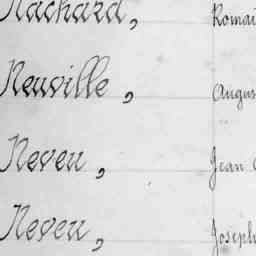 Nachard, Romai
Neuville, Augus
Neveu, Jean
Neveu, Joseph